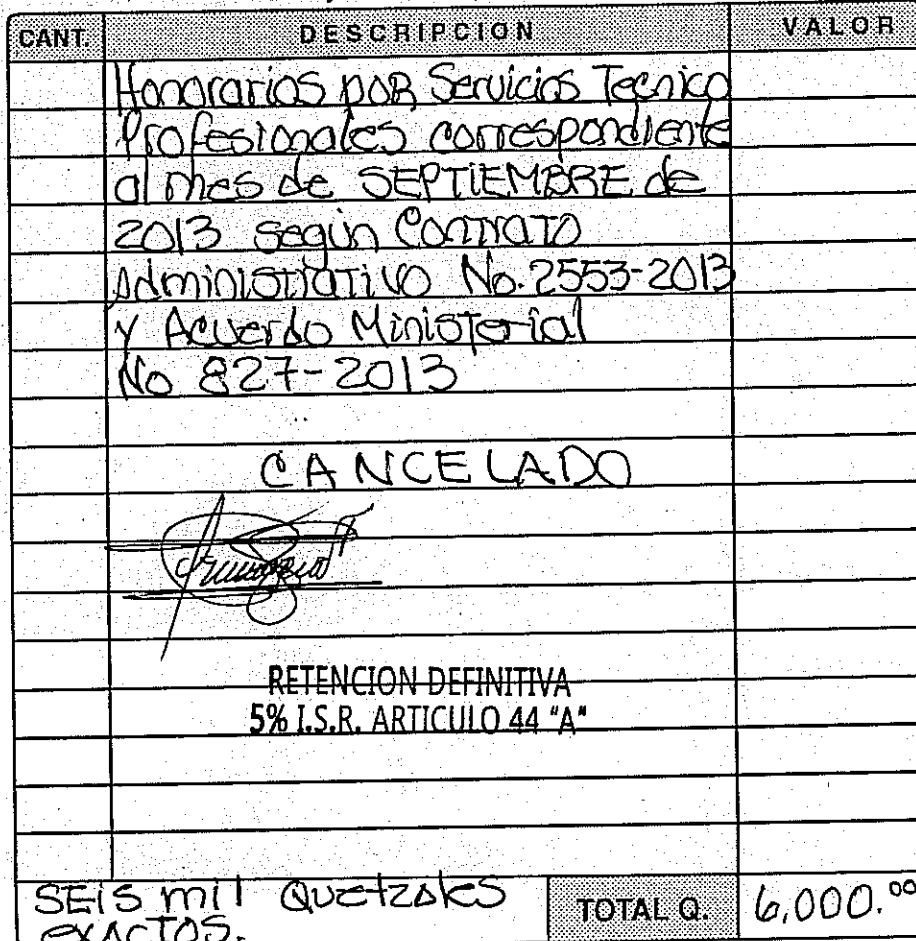 CANT. DESCRIPCION VALOR
Honorarios por Servicios Tecnico
Profesionales correspondiente
al mes de SEPTIEMBRE de
2013 según Contrato
Administrativo No. 2553-2013
y Acuerdo Ministerial
No 827-2013
CANCELADO
RETENCION DEFINITIVA
5% I.S.R. ARTICULO 44 "A"
SEIS mil Quetzales
exACTOS.
TOTAL Q. 6,000.00